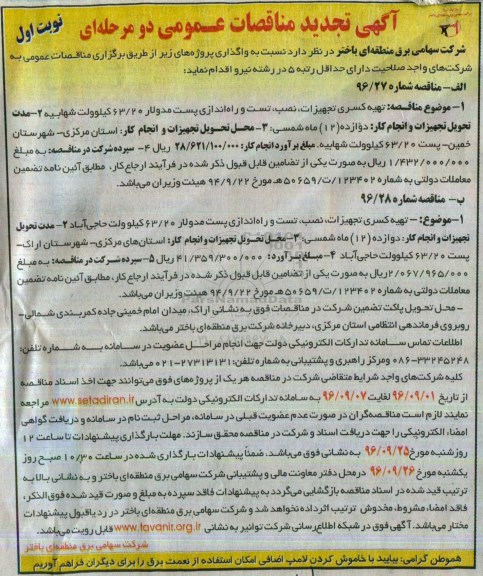 آگهی تجدید مناقصات عمومی دو مرحله‌ای
نوبت اول
شرکت سهامی برق منطقه‌ای باختر در نظر دارد نسبت به واگذاری پروژه‌های زیر از طریق برگزاری مناقصات عمومی به
شرکت‌های واجد صلاحیت دارای حداقل رتبه ۵ در رشته نیرو اقدام نماید:
الف- مناقصه شماره ۹۶/۲۷
۱- موضوع مناقصه: تهیه کسری تجهیزات، نصب، تست و راه‌اندازی پست مدولار ۶۳/۲۰ کیلوولت شهابیه ۲-مدت
تحویل تجهیزات و انجام کار: دوازده (۱۲) ماه شمسی؛ ۳- محل تحویل تجهیزات و انجام کار: استان مرکزی- شهرستان
خمین- پست ۶۳/۲۰ کیلوولت شهابیه. مبلغ برآورد انجام کار: ۲۸/۶۲۱/۱۰۰/۰۰۰ ریال ۴- سپرده شرکت در مناقصه: به مبلغ
۱/۴۳۲/۰۰۰/۰۰۰ ریال به صورت یکی از تضامین قابل قبول ذکر شده در فرآیند ارجاع کار، مطابق آئین نامه تضمین
معاملات دولتی به شماره ۱۲۳۴۰۲/ت/۵۰۶۵۹ هـ مورخ ۹۴/۹/۲۲ هیئت وزیران می‌باشد.
ب- مناقصه شماره ۹۶/۲۸
۱-موضوع: – تهیه کسری تجهیزات، نصب، تست و راه‌اندازی پست مدولار ۶۳/۲۰ کیلوولت حاجی‌آباد ۲- مدت تحویل
تجهیزات و انجام کار: دوازده (۱۲) ماه شمسی؛ ۳- محل تحویل تجهیزات و انجام کار: استان‌های مرکزی- شهرستان اراک-
پست ۶۳/۲۰ کیلوولت حاجی‌آباد ۴- مبلغ برآورد: ۴۱/۳۵۹/۳۰۰/۰۰۰ ریال ۵- سپرده شرکت در مناقصه: به مبلغ
۲/۰۶۷/۹۶۵/۰۰۰ ریال به صورت یکی از تضامین قابل قبول ذکر شده در فرآیند ارجاع کار، مطابق آئین نامه تضمین
معاملات دولتی به شماره ۱۲۳۴۰۲/ت/۵۰۶۵۹ هـ مورخ ۹۴/۹/۲۲ هیئت وزیران می‌باشد.
- محل تحویل پاکت تضمین شرکت در مناقصات فوق به نشانی اراک، میدان امام خمینی جاده کمربندی شمالی-
روبروی فرماندهی انتظامی استان مرکزی، دبیرخانه شرکت برق منطقه‌ای باختر می‌باشد.
اطلاعات تماس سامانه تدارکات الکترونیکی دولت جهت انجام مراحل عضویت در سامانه به شماره تلفن:
۰۸۶-۳۳۲۴۵۲۴۸ و مرکز راهبری و پشتیبانی به شماره تلفن: ۲۷۳۱۳۱۳۱-۰۲۱ می‌باشد.
کلیه شرکت‌های واجد شرایط متقاضی شرکت در مناقصه هر یک از پروژه‌های فوق می‌توانند جهت اخذ اسناد مناقصه
از تاریخ ۹۶/۰۹/۰۱ لغایت ۹۶/۰۹/۰۷ به سامانه تدارکات الکترونیکی دولت به آدرس www.setadiran.ir مراجعه
نمایند لازم است مناقصه‌گران در صورت عدم عضویت قبلی در سامانه، مراحل ثبت نام در سامانه و دریافت گواهی
امضاء الکترونیکی را جهت دریافت اسناد و شرکت در مناقصه محقق سازند. مهلت بارگذاری پیشنهادات تا ساعت ۱۲
روز شنبه مورخ ۹۶/۰۹/۲۵ به نشانی فوق می‌باشد، ضمناً پیشنهادات بارگذاری شده در ساعت ۱۰/۳۰ صبح روز
یکشنبه مورخ ۹۶/۰۹/۲۶ در محل دفتر معاونت مالی و پشتیبانی شرکت سهامی برق منطقه‌ای باختر و به نشانی بالا به
ترتیب قید شده در اسناد مناقصه بازگشایی می‌گردد به پیشنهادات فاقد سپرده به مبلغ و صورت قید شده فوق الذکر،
فاقد امضاء، مشروط، مخدوش ترتیب اثر داده نخواهد شد و شرکت سهامی برق منطقه‌ای باختر در رد یا قبول پیشنهادات
مختار می‌باشد. آگهی فوق در شبکه اطلاع‌رسانی شرکت توانیر به نشانی www.tavanir.org.ir قابل رویت می‌باشد.
شرکت سهامی برق منطقه‌ای باختر
هموطن گرامی: بیایید با خاموش کردن لامپ اضافی امکان استفاده از نعمت برق را برای دیگران فراهم آوریم